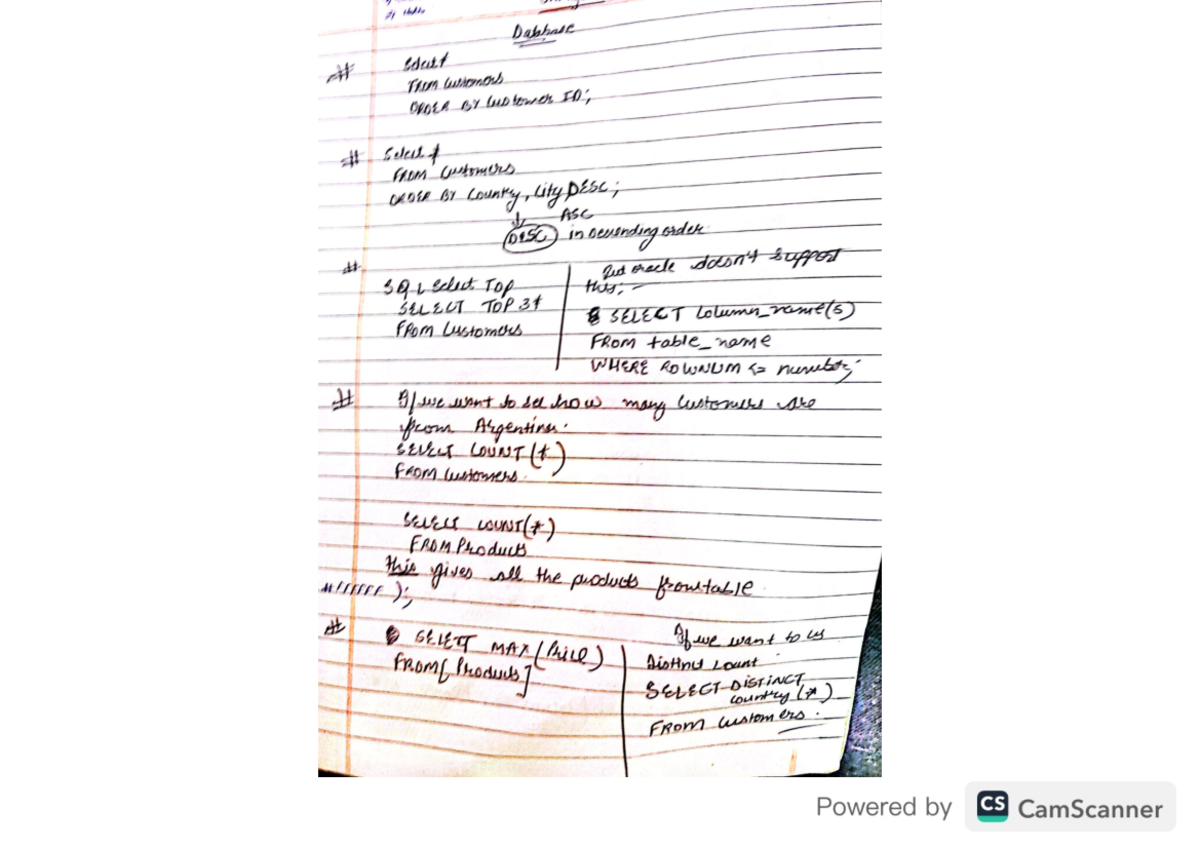 Database
# Select *
From Customers
ORDER BY Customer ID;
# Select *
FROM Customers
ORDER BY Country, City DESC;
↓ ASC
DESC in decending order
#
SQL Select TOP
SELECT TOP 3 *
From Customers
But oracle doesn't support
this; —
SELECT Column_name(s)
FROM table_name
WHERE ROWNUM <= number;
# If we want to see how many Customers are
from Argentina.
SELECT COUNT(*)
From Customers.
SELECT COUNT(*)
FROM Products
this gives all the products from table
);
# SELECT MAX(Price)
FROM[Products]
If we want to us
Distinct count
SELECT DISTINCT
country (*)
FROM Customers.
Powered by CS CamScanner